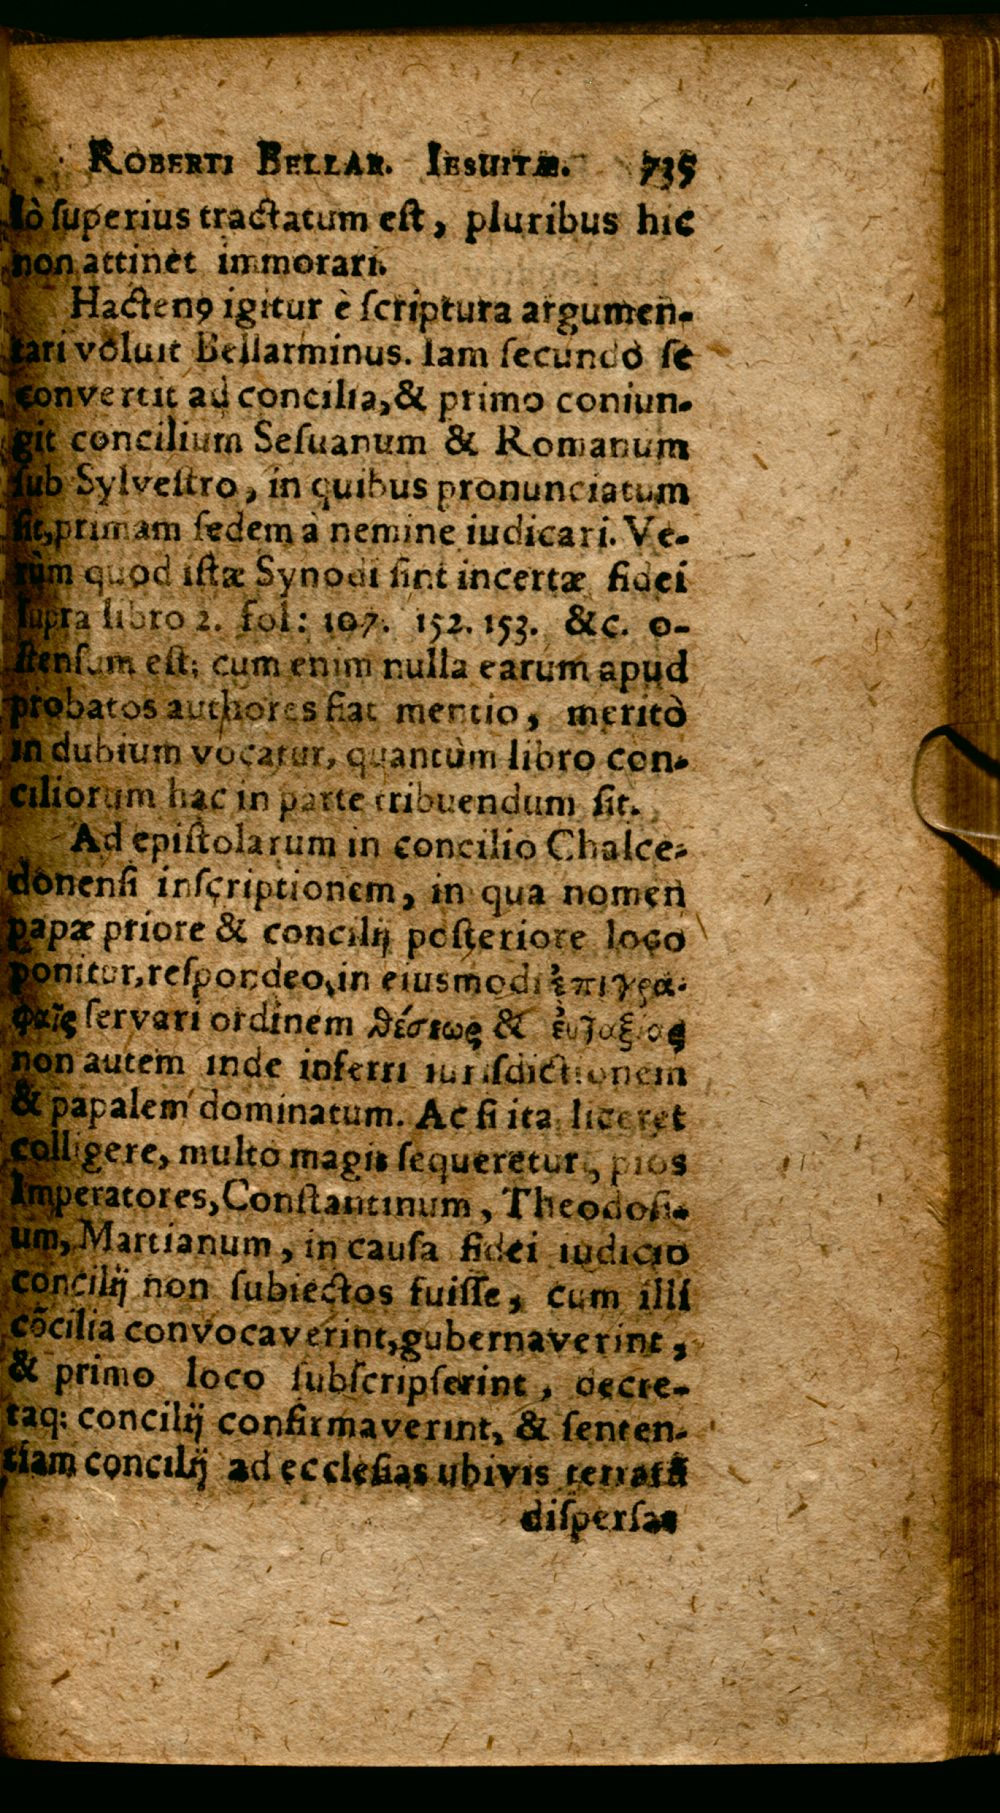 ROBERTI BELLAR. IESUITÆ. 735
lò ſuperius tractatum eſt, pluribus hic
non attinet immorari.
Hactenꝰ igitur è ſcriptura argumen-
tari voluit Bellarminus. Iam ſecundò ſe
convertit ad concilia, & primo coniun-
git concilium Seſuanum & Romanum
ſub Sylveſtro, in quibus pronunciatum
ſit, primam ſedem à nemine iudicari. Ve-
rùm quod iſtæ Synodi ſint incertæ fidei
ſupra libro 2. fol: 107. 152. 153. &c. o-
ſtenſum eſt; cum enim nulla earum apud
probatos authores fiat mentio, meritò
in dubium vocatur, quantùm libro con-
ciliorum hac in parte tribuendum ſit.
Ad epiſtolarum in concilio Chalce-
donenſi inſcriptionem, in qua nomen
papæ priore & concilij poſteriore loco
ponitur, reſpondeo, in eiusmodi ἐπιγρα-
φαῖς ſervari ordinem θέσεως & ἐυταξίας
non autem inde inferri iuriſdictionem
& papalem dominatum. Ac ſi ita liceret
colligere, multo magis ſequeretur, pios
Imperatores, Conſtantinum, Theodoſi-
um, Martianum, in cauſa fidei iudicio
concilij non ſubiectos fuiſſe, cum illi
cõcilia convocaverint, gubernaverint,
& primo loco ſubſcripſerint, decre-
taq; concilij confirmaverint, & ſenten-
tiam concilij ad eccleſias ubivis terrarũ
diſperſas